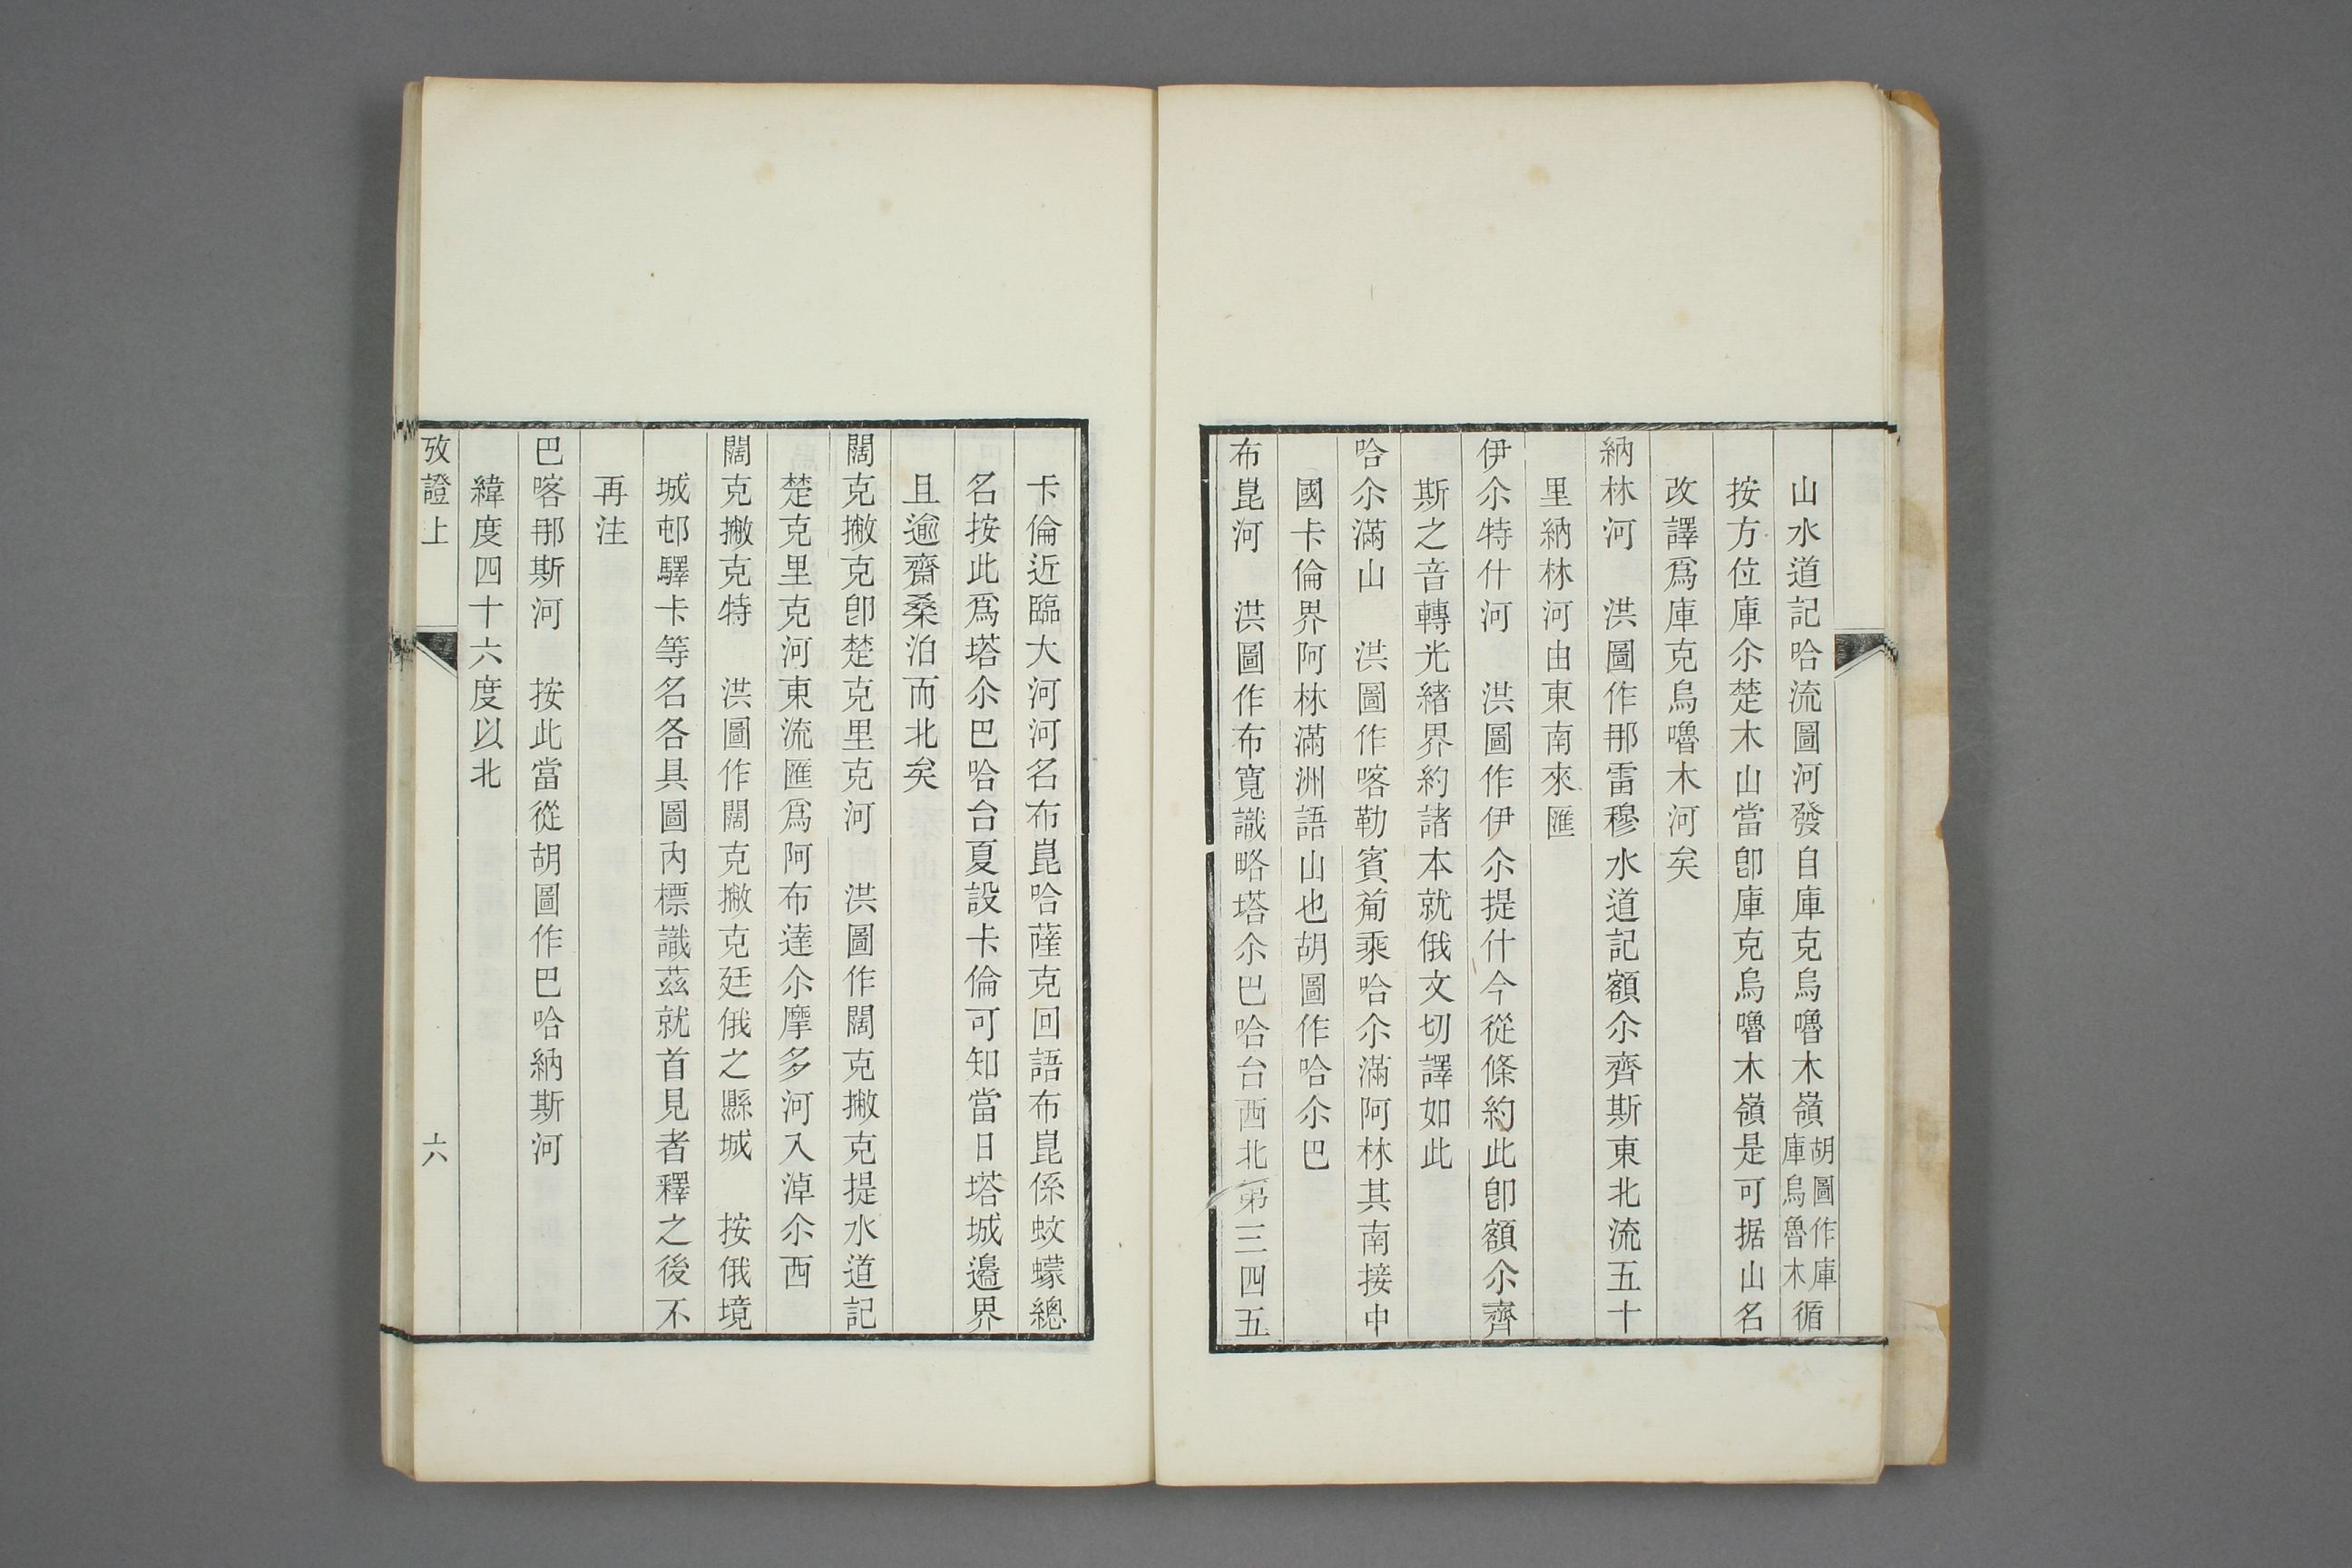 山水道記哈流圖河發自庫克烏嚕木嶺胡圖作庫庫烏魯木循
按方位庫尒楚木山當卽庫克烏嚕木嶺是可据山名
改譯爲庫克烏嚕木河矣
納林河　洪圖作那雷穆水道記額尒齊斯東北流五十
里納林河由東南來匯
伊尒特什河　洪圖作伊尒提什今從條約此卽額尒齊
斯之音轉光緒界約諸本就俄文切譯如此
哈尒滿山　洪圖作喀勒賓葡乘哈尒滿阿林其南接中
國卡倫界阿林滿洲語山也胡圖作哈尒巴
布崑河　洪圖作布寬識略塔尒巴哈台西北第三四五
卡倫近臨大河河名布崑哈薩克回語布崑係蚊蠓總
名按此爲塔尒巴哈台夏設卡倫可知當日塔城邊界
且逾齋桑泊而北矣
闊克撇克卽楚克里克河　洪圖作闊克撇克提水道記
楚克里克河東流匯爲阿布達尒摩多河入淖尒西
闊克撇克特　洪圖作闊克撇克廷俄之縣城　按俄境
城邨驛卡等名各具圖內標識茲就首見者釋之後不
再注
巴喀那斯河　按此當從胡圖作巴哈納斯河
緯度四十六度以北
攷證上
六